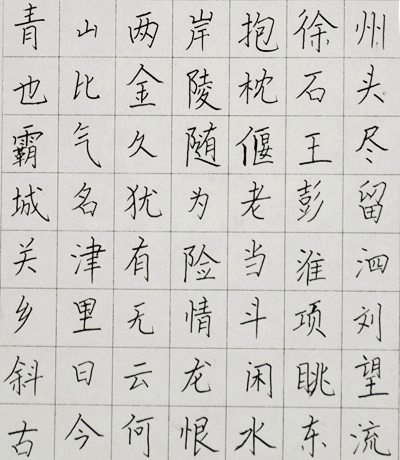 青山两岸抱徐州
也比金陵枕石头
霸气久随偃王尽
城名犹为老彭留
关津有险当淮泗
乡里无情斗项刘
斜日云龙闲眺望
古今何恨水东流